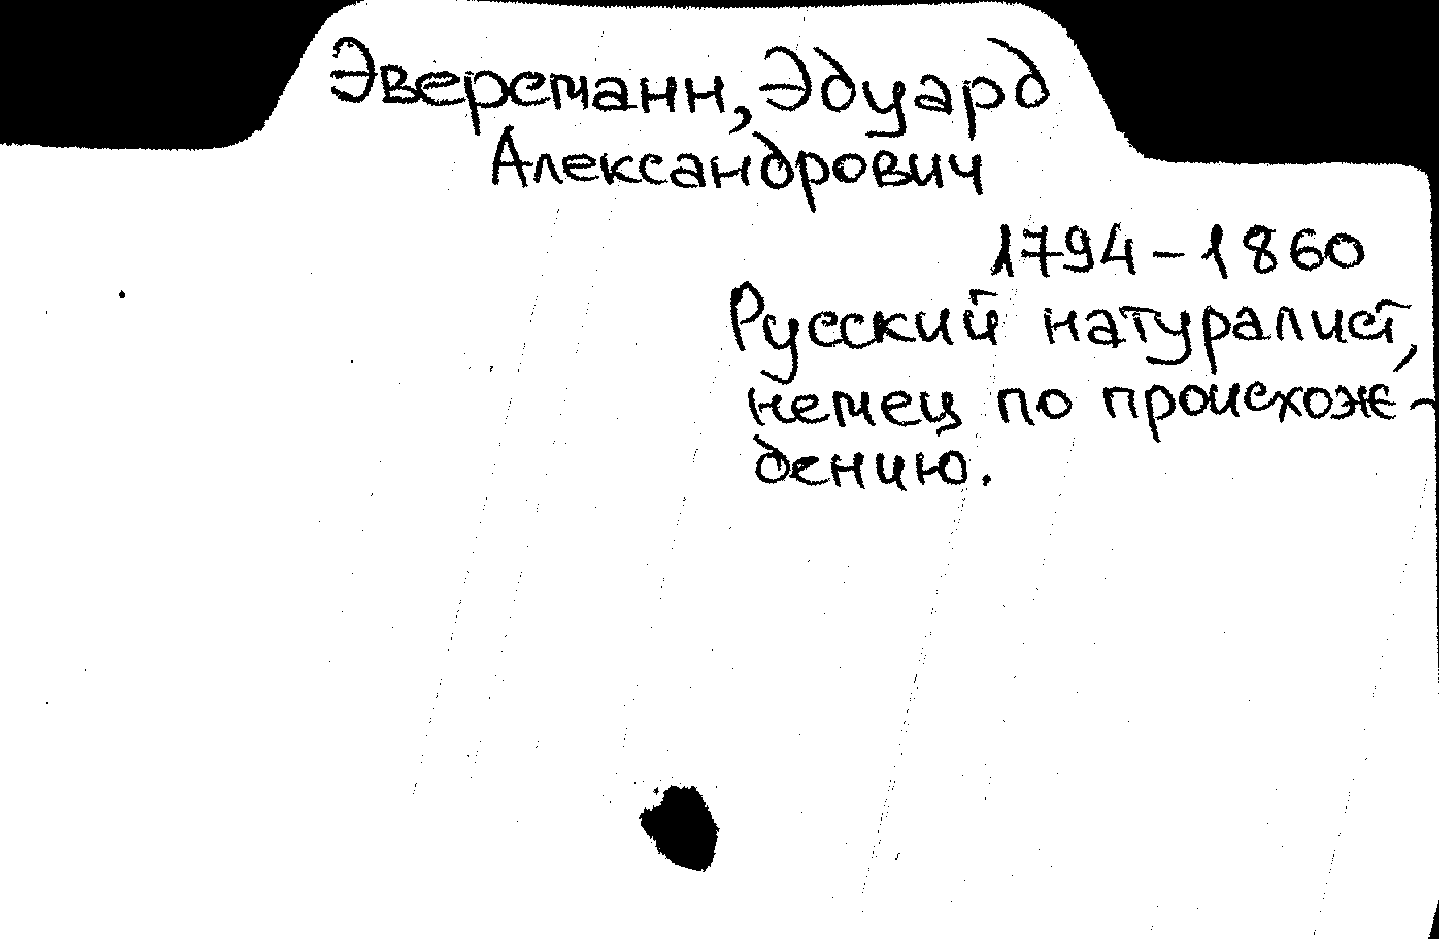 Эверсманн, Эдуард
Александрович
1794-1860
Русский натуралист,
немец по происхож-
дению.